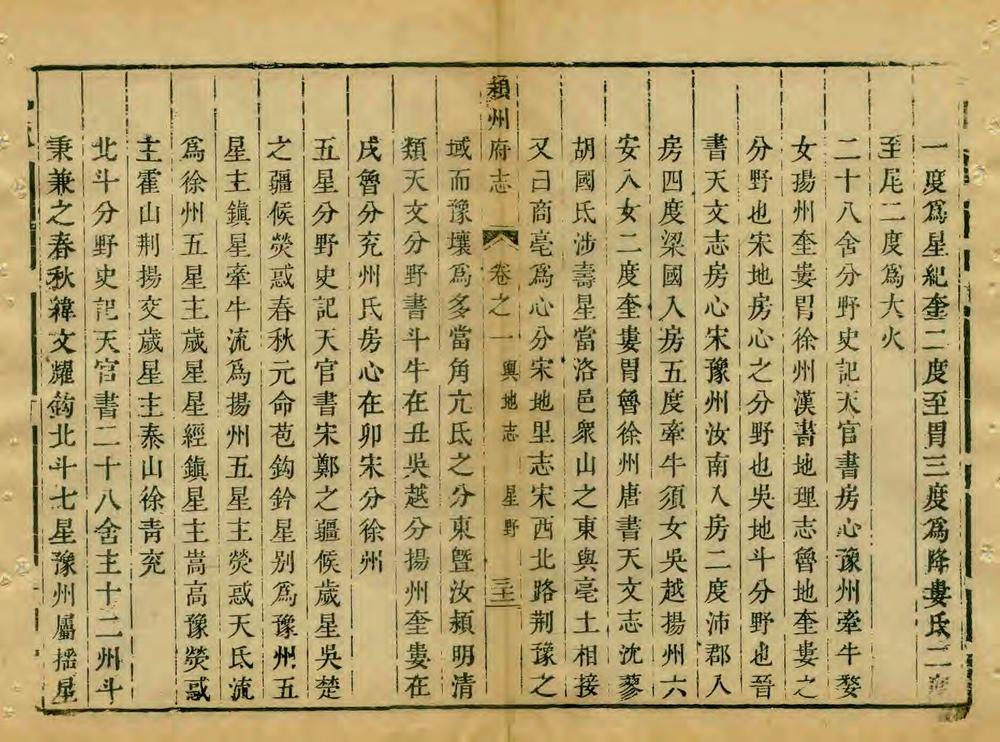 一度爲星紀奎二度至胃三度爲降婁氐二度
至尾二度爲大火
二十八舍分野史記天官書房心豫州牽牛婺
女揚州奎婁胃徐州漢書地理志魯地奎婁之
分野也宋地房心之分野也吳地斗分野也晉
書天文志房心宋豫州汝南入房二度沛郡入
房四度梁國入房五度牽牛須女吳越揚州六
安入女二度奎婁胃魯徐州唐書天文志沈蓼
胡國氐涉壽星當洛邑衆山之東與亳土相接
又曰商亳爲心分宋地里志宋西北路荆豫之
潁州府志 卷之一 輿地志 星野 三十二
域而豫壤爲多當角亢氐之分東曁汝潁明清
類天文分野書斗牛在丑吳越分揚州奎婁在
戌魯分兖州氐房心在卯宋分徐州
五星分野史記天官書宋鄭之疆候歲星吳楚
之疆候熒惑春秋元命苞鈎鈐星别爲豫州五
星主鎮星牽牛流爲揚州五星主熒惑天氐流
爲徐州五星主歲星星經鎮星主嵩高豫熒惑
主霍山荆揚交歲星主泰山徐青兖
北斗分野史記天官書二十八舍主十二州斗
秉兼之春秋緯文耀鈎北斗七星豫州屬搖星